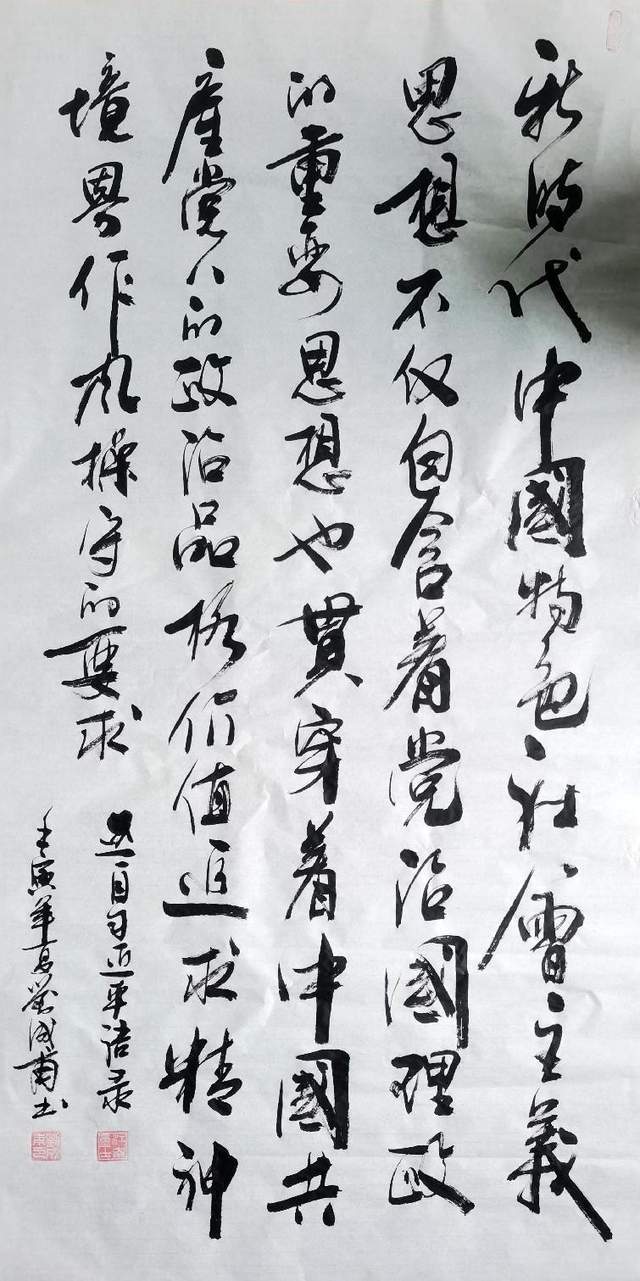 新時代中國特色社會主義
思想不仅包含着党治國理政
的重要思想也貫穿着中國共
產党人的政治品格价值追求精神
境界作风操守的要求
选自习近平语录
壬寅年夏荣成甫书